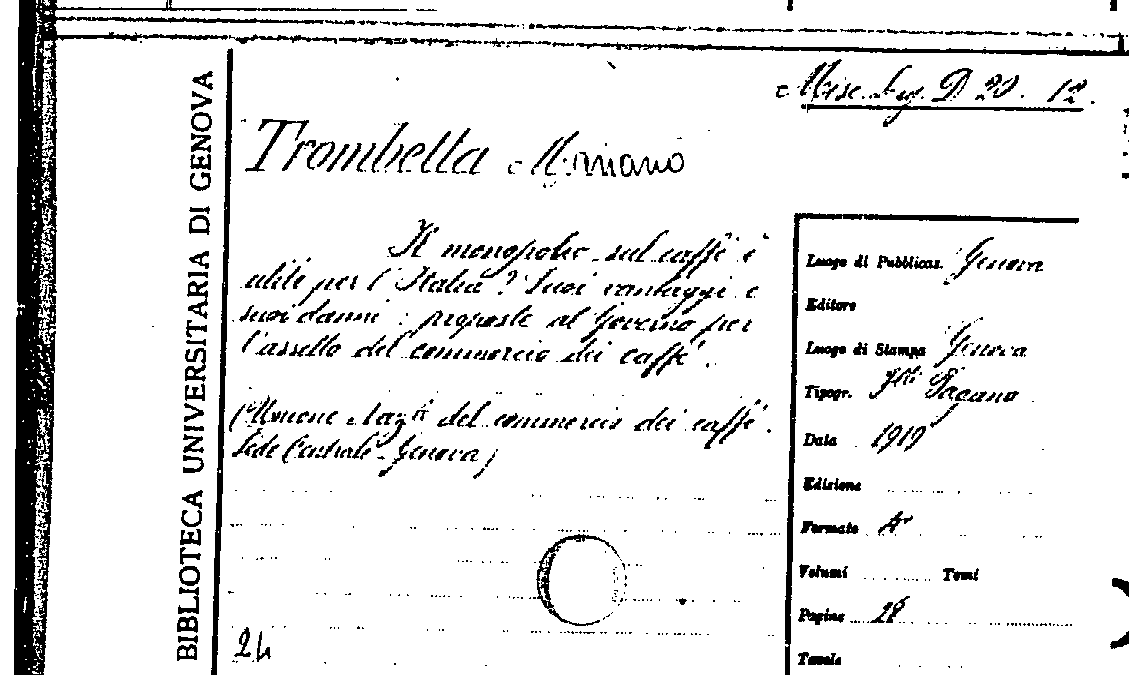 Misc. Leg. D 20. 12.
BIBLIOTECA UNIVERSITARIA DI GENOVA
Trombetta Mariano
Il monopolio sul caffè è
utile per l'Italia? Suoi vantaggi e
suoi danni: proposte al Governo per
l'assetto del commercio dei caffè.
(Unione Naz.le del commercio dei caffè.
Sede Centrale - Genova)
24
Luogo di Pubblicaz. Genova
Editore
Luogo di Stampa Genova
Tipogr. F.lli Pagano
Data 1919
Edizione
Formato 4°
Volumi Tomi
Pagine 28
Tavole